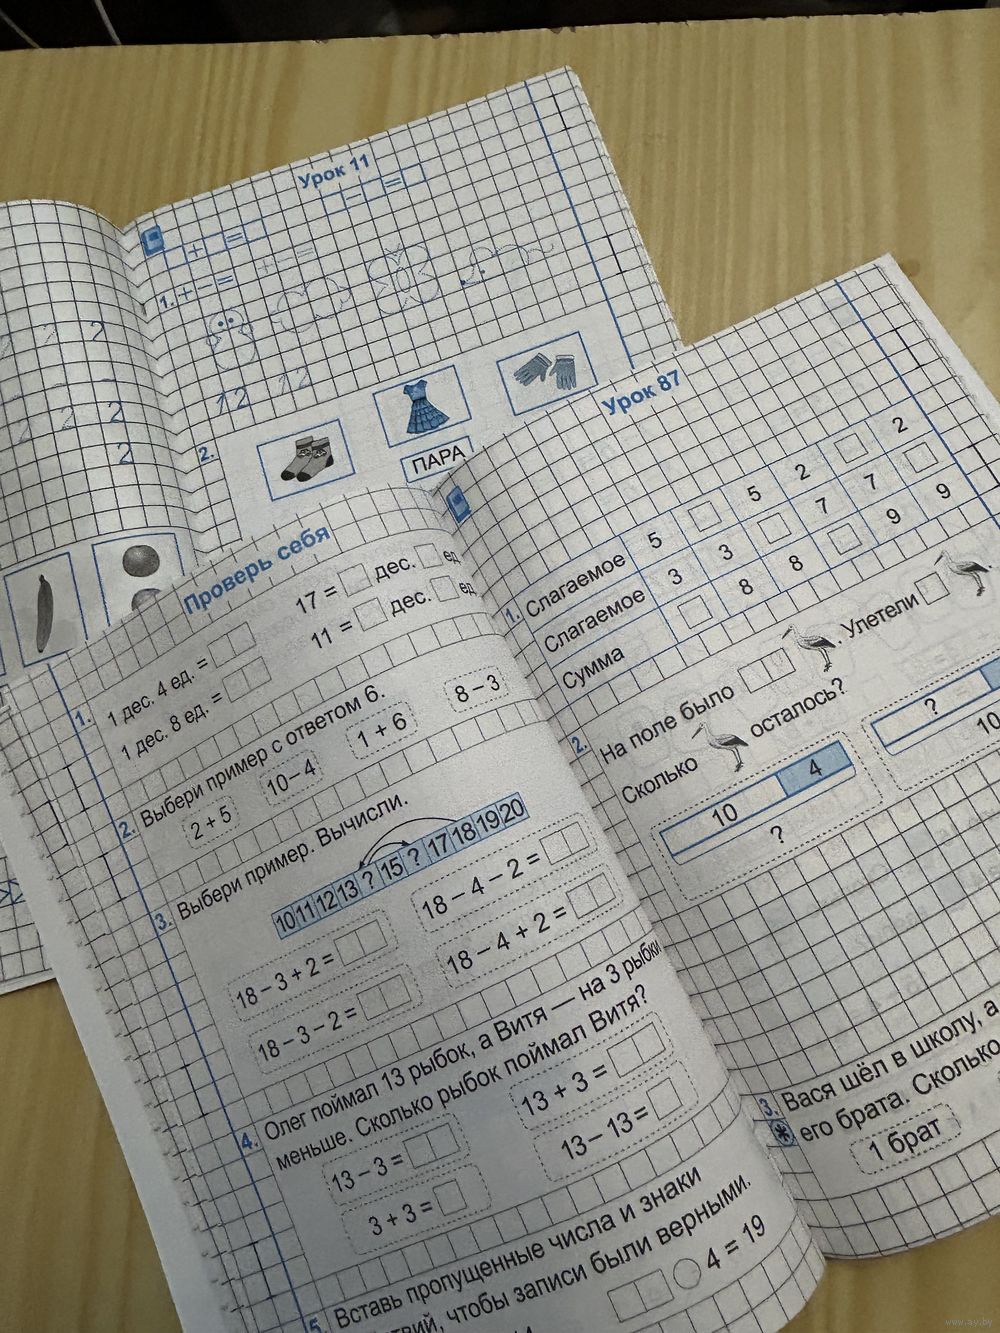 Урок 11
□ + □ = □ □ − □ = □
1. + − = + − =
12 12
2 2
2 2 2
2
2.
ПАРА
Проверь себя
1. 1 дес. 4 ед. = □ 17 = □ дес. □ ед
1 дес. 8 ед. = □ 11 = □ дес. □ ед
2. Выбери пример с ответом 6.
2 + 5 10 – 4 1 + 6 8 – 3
3. Выбери пример. Вычисли.
10 11 12 13 ? 15 ? 17 18 19 20
18 – 3 + 2 = □□ 18 – 4 – 2 = □□
18 – 3 – 2 = □□ 18 – 4 + 2 = □□
4. Олег поймал 13 рыбок, а Витя — на 3 рыбки
меньше. Сколько рыбок поймал Витя?
13 – 3 = □□ 13 + 3 = □□
3 + 3 = □ 13 – 13 = □
5. Вставь пропущенные числа и знаки
чтобы записи были верными.
□□ ○ 4 = 19
Урок 87
1. Слагаемое 5 □ 5 2 □ 2
Слагаемое 3 3 □ 7 7 □
Сумма □ 8 8 □ 9 9
2. На поле было □□ Улетели □
Сколько осталось?
10 4
?
?
10
3. Вася шёл в школу, а
* его брата. Сколько
1 брат
www.ay.by